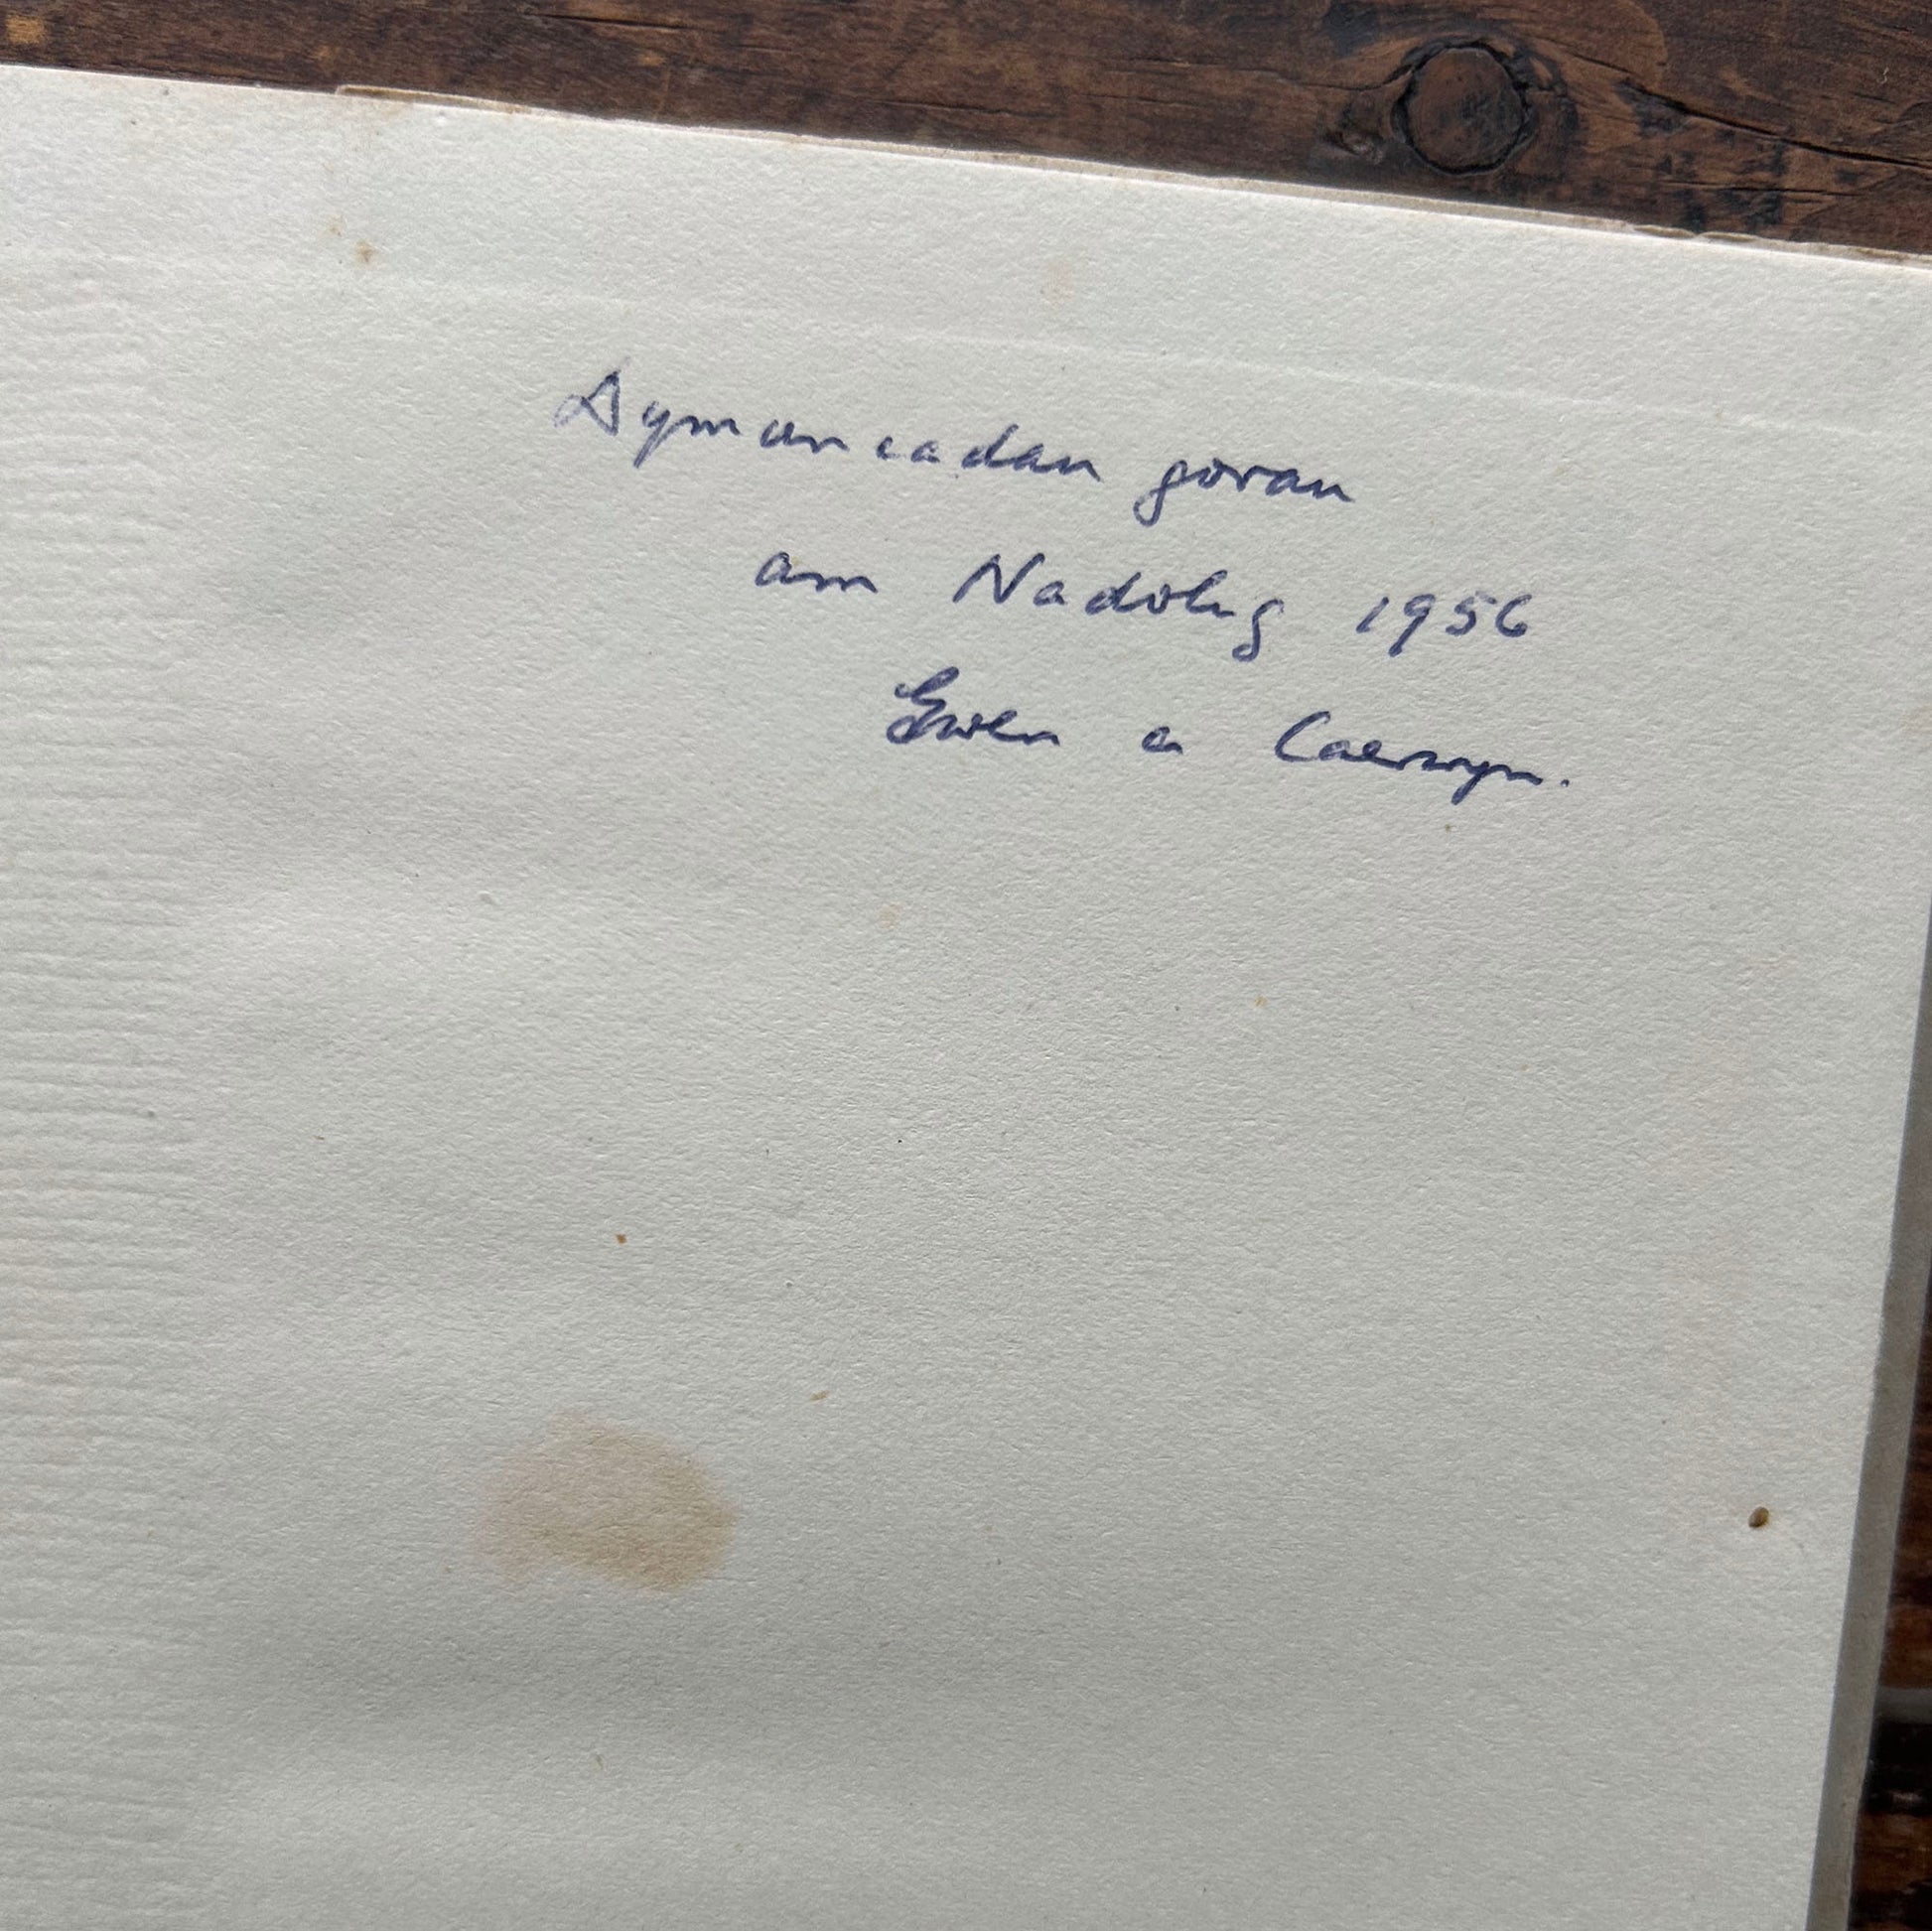 Dymuniadau gorau
am Nadolig 1956
Gwen a Caerwyn.